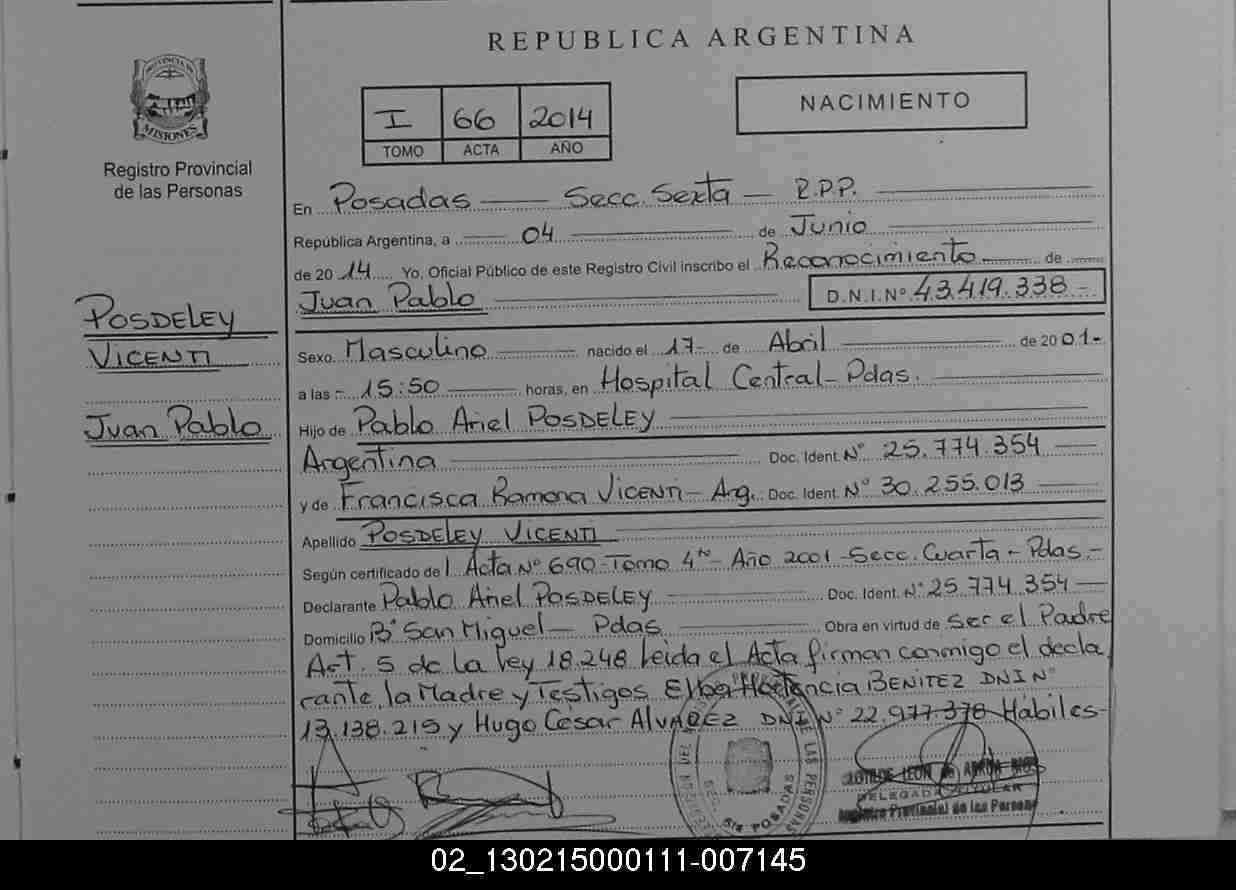 REPUBLICA ARGENTINA
PROVINCIA DE
MISIONES
Registro Provincial
de las Personas
I 66 2014
TOMO ACTA AÑO
NACIMIENTO
En Posadas — Secc. Sexta — R.P.P.
República Argentina, a 04 de Junio
de 2014 Yo, Oficial Público de este Registro Civil inscribo el Reconocimiento de
Juan Pablo D.N.I.Nº 43.419.338-
POSDELEY
VICENTI
Juan Pablo
Sexo Masculino nacido el 17- de Abril de 2001-
a las - 15:50 horas, en Hospital Central- Pdas.
Hijo de Pablo Ariel POSDELEY
Argentina Doc. Ident. Nº 25.774.354
y de Francisca Ramona VICENTI- Arg. Doc. Ident. Nº 30.255.013
Apellido POSDELEY VICENTI
Según certificado del Acta Nº 690-Tomo 4º- Año 2001-Secc. Cuarta- Pdas-
Declarante Pablo Ariel POSDELEY Doc. Ident. Nº 25.774.354
Domicilio Bº San Miguel- Pdas Obra en virtud de ser el Padre
Art. 5 de la ley 18.248 leida el Acta firman conmigo el decla
rante, la Madre y Testigos Elba Hortencia BENITEZ DNI Nº
13.138.215 y Hugo César ALVAREZ DNI Nº 22.977.378 Hábiles-
DE LAS PERSONAS
POSADAS
DELEGADA TITULAR
Registro Provincial de las Personas
02_130215000111-007145